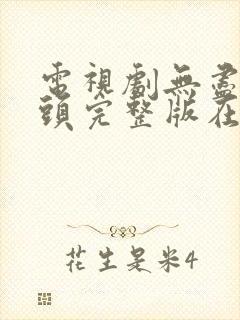 電視劇無盡
頭完整版在
花生是米4